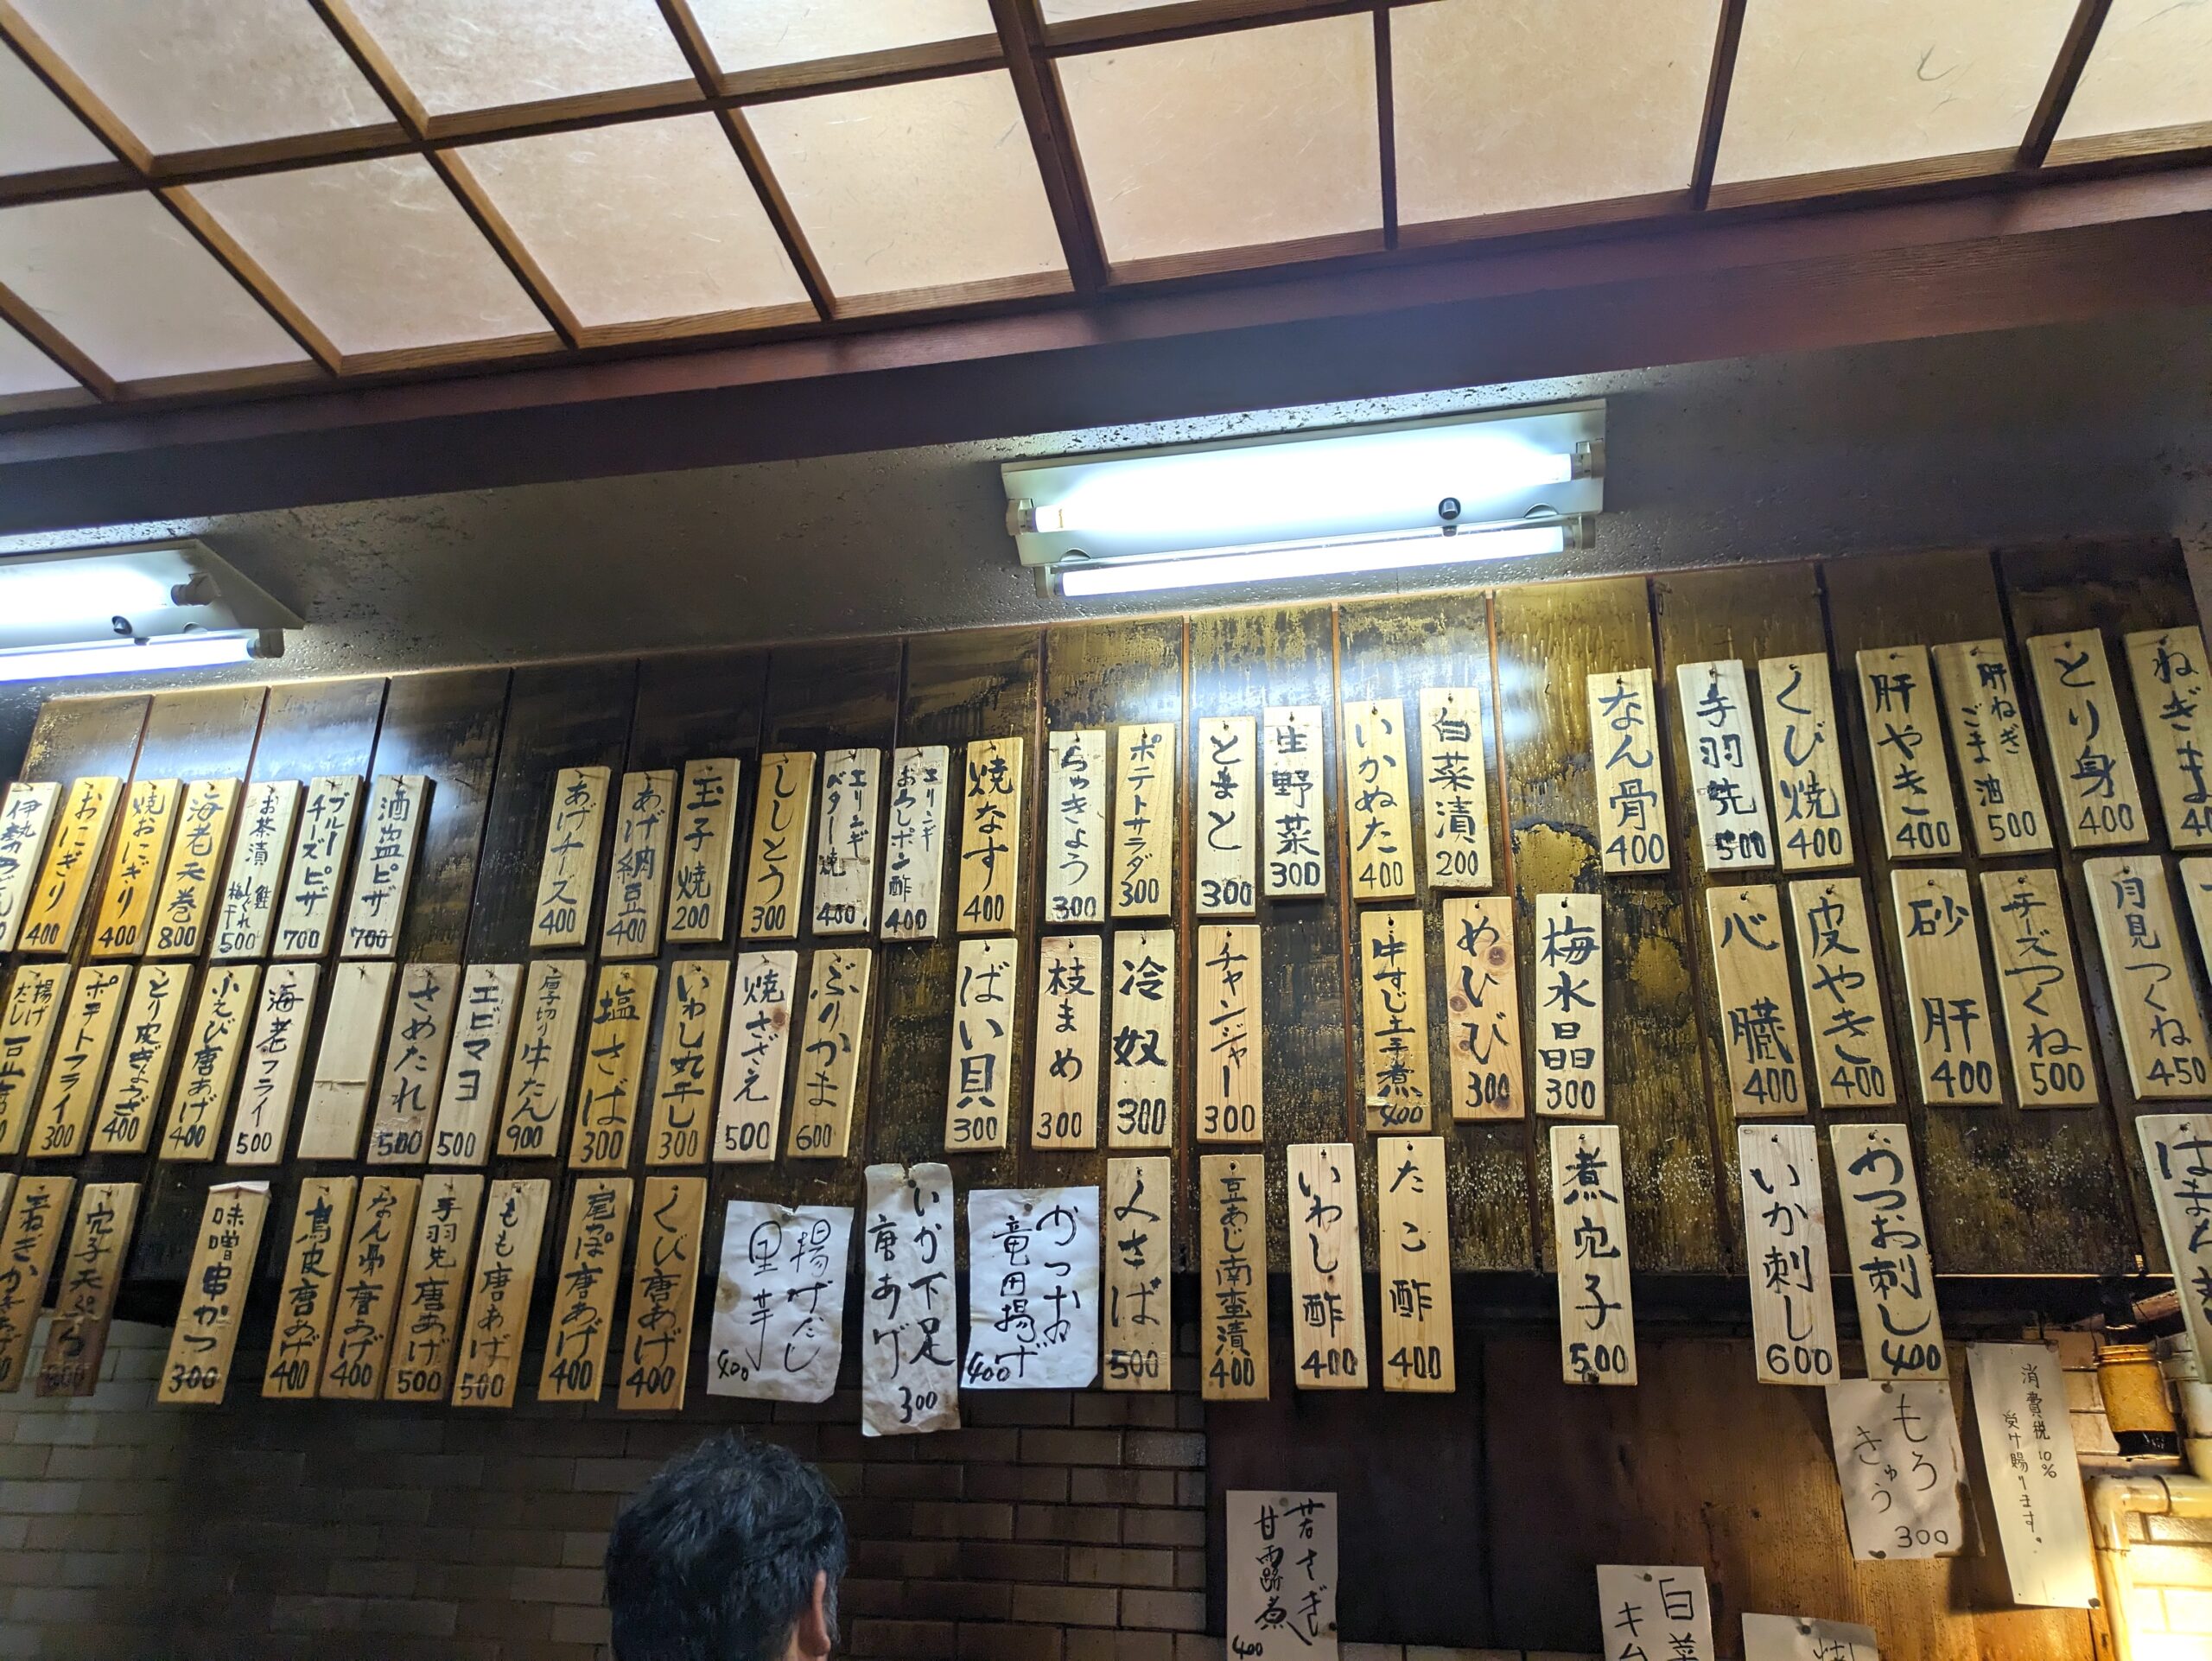 おにぎり
400
焼おにぎり
400
海老天巻
800
お茶漬
鮭
しぐれ
梅干
500
ブルー
チーズピザ
700
酒盗ピザ
700
あげチーズ
400
あげ納豆
400
玉子焼
200
ししとう
300
エリンギ
バター焼
400
エリンギ
おろしポン酢
400
焼なす
400
らっきょう
300
ポテトサラダ
300
とまと
300
生野菜
300
いかぬた
400
白菜漬
200
なん骨
400
手羽先
500
くび焼
400
肝やき
400
肝ねぎ
ごま油
500
とり身
400
ねぎま
揚げ
だし
ポテトフライ
300
とり皮ぎょうざ
400
小えび唐あげ
400
海老フライ
500
さめたれ
500
エビマヨ
500
厚切り牛たん
900
塩さば
300
いわし丸干し
300
焼さざえ
500
ぶりかま
600
ばい貝
300
枝まめ
300
冷奴
300
チャンジャー
300
牛すじ土手煮
400
めひび
300
梅水晶
300
心臓
400
皮やき
400
砂肝
400
チーズつくね
500
月見つくね
450
穴子天ぷら
味噌串かつ
300
鳥皮唐あげ
400
なん骨唐あげ
400
手羽先唐あげ
500
もも唐あげ
500
尾っぽ唐あげ
400
くび唐あげ
400
揚げだし
里芋
400
いか下足
唐あげ
300
かつお
竜田揚げ
400
〆さば
500
豆あじ南蛮漬
400
いわし酢
400
たこ酢
400
煮穴子
500
いか刺し
600
かつお刺し
400
もろ
きゅう
300
消費税10%
受け賜ります。
若さぎ
甘露煮
400
白菜
キム